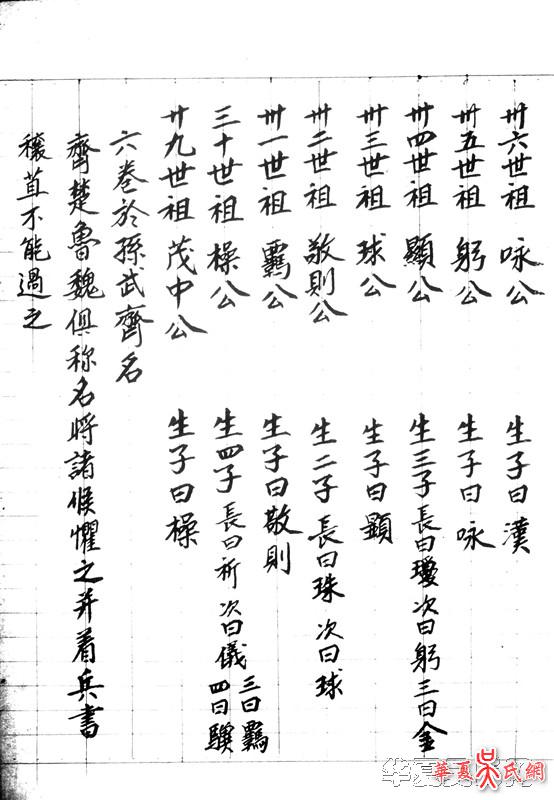 穰苴不能過之
齊楚魯魏俱称名将諸候懼之并着兵書
六卷於孫武齊名
廿九世祖 茂中公 生子曰橾
三十世祖 橾公 生四子長曰祈 次曰儀 三曰羈 四曰
卅一世祖 羈公 生子曰敬則
卅二世祖 敬則公 生二子長曰珠 次曰球
卅三世祖 球公 生子曰顕
卅四世祖 顯公 生三子長曰瓊次曰躬三曰金
卅五世祖 躬公 生子曰咏
卅六世祖 咏公 生子曰漢
華夏吴氏網